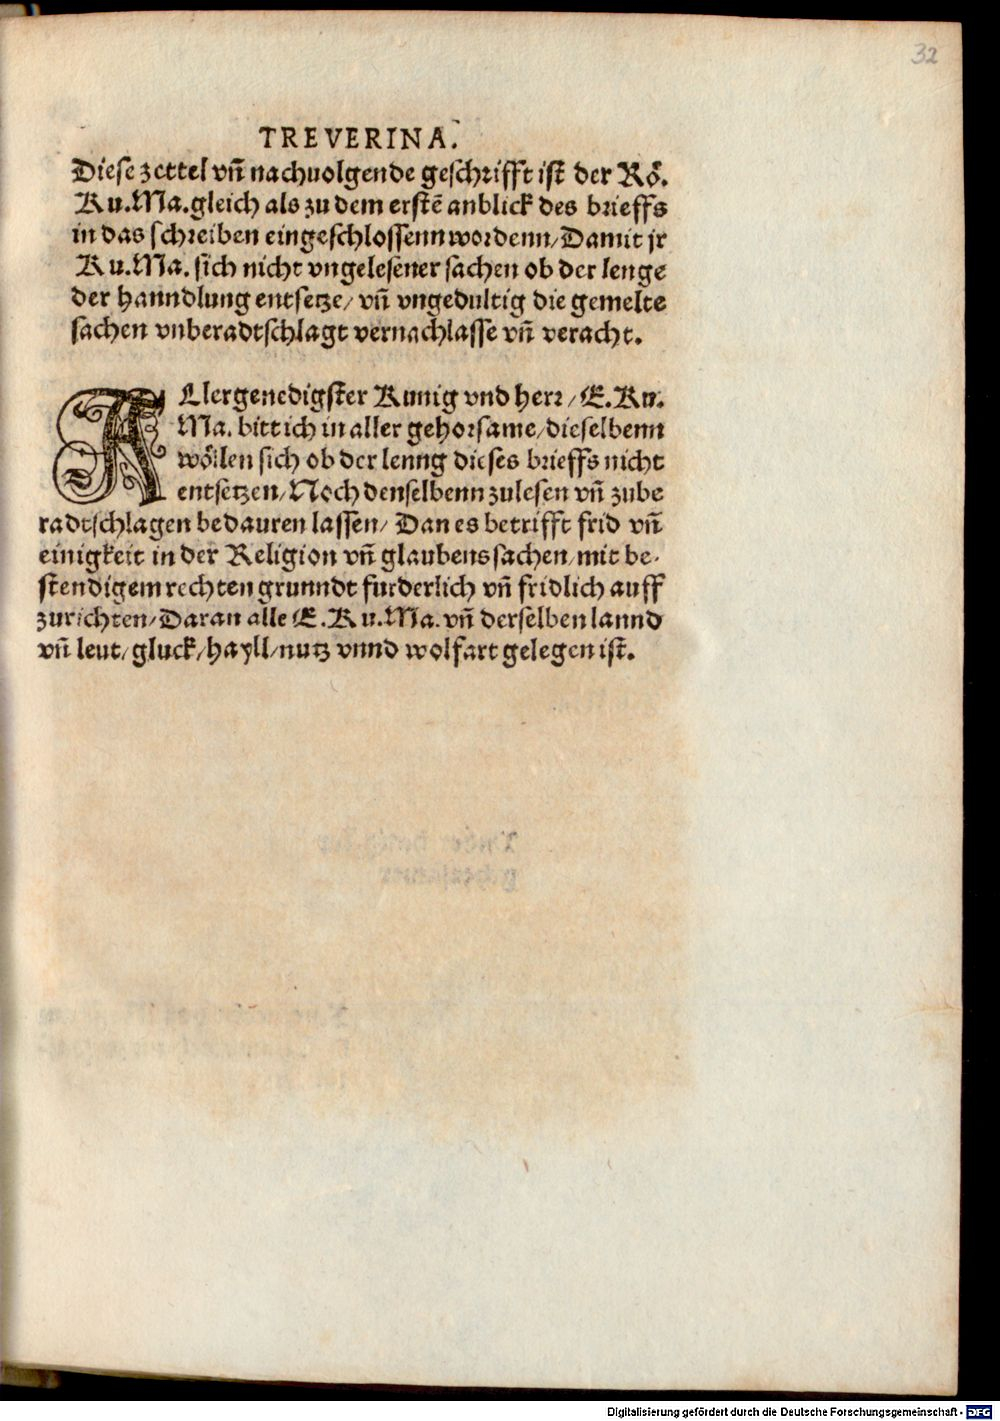 32
TREVERINA.
Diese zettel vñ nachuolgende geschrifft ist der Rö.
Ku.Ma.gleich als zu dem erstẽ anblick des brieffs
in das schreiben eingeschlossenn wordenn/Damit jr
Ku.Ma. sich nicht vngelesener sachen ob der lenge
der hanndlung entsetze/ vñ vngedultig die gemelte
sachen vnberadtschlagt vernachlasse vñ veracht.
ALlergenedigster Kunig vnd herr/E.Ku.
Ma. bitt ich in aller gehorsame/dieselbenn
wöllen sich ob der lenng dieses brieffs nicht
entsetzen/Noch denselbenn zulesen vñ zube
radtschlagen bedauren lassen/ Dan es betrifft frid vñ
einigkeit in der Religion vñ glaubens sachen/mit be-
stendigem rechten grunndt furderlich vñ fridlich auff
zurichten/Daran alle E.Ku.Ma. vñ derselben lannd
vñ leut/gluck/hayll/nutz vnnd wolfart gelegen ist.
Digitalisierung gefördert durch die Deutsche Forschungsgemeinschaft - DFG